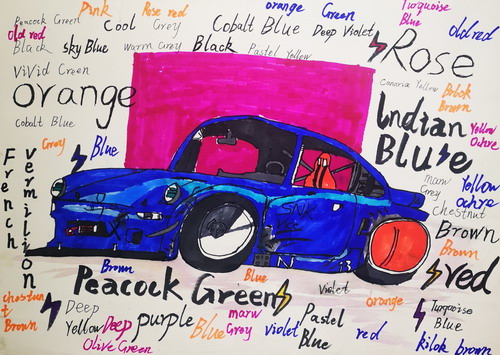 Peacock Green
Pink
Rose red
orange
Green
Turquoise
Blue
old red
Old red
Cool Grey
Cobalt Blue
Deep Violet
Black
sky Blue
Warm Grey
Black
Pastel Yellow
Rose
ViVid Green
Canaria Yellow
orange
Indian
Blue
Yellow
Ochre
Cobalt Blue
Grey
Blue
French
Vermilion
marw
Grey
Yellow
ochre
Chestnut
Brown
Brown
red
Brown
Peacock Green
Blue
Violet
orange
chestnut
Brown
Deep
Yellow
Deep
purple
Blue
marw
Grey
violet
Pastel
Blue
red
Turquoise
Blue
Olive Green
kilok brown